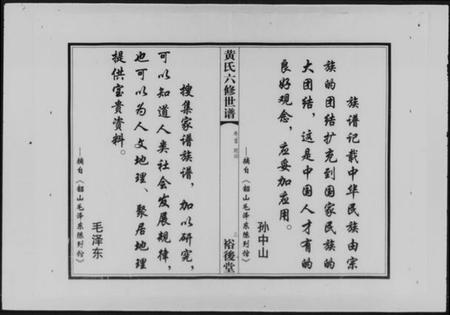 族谱记载中华民族由宗
族的团结扩充到国家民族的
大团结，这是中国人才有的
良好观念，应妥加应用。
孙中山
——摘自《韶山毛泽东陈列馆》
黄氏六修世谱
卷首
裕後堂
搜集家谱族谱，加以研究，
可以知道人类社会发展规律，
也可以为人文地理、聚居地理
提供宝贵资料。
毛泽东
——摘自《韶山毛泽东陈列馆》